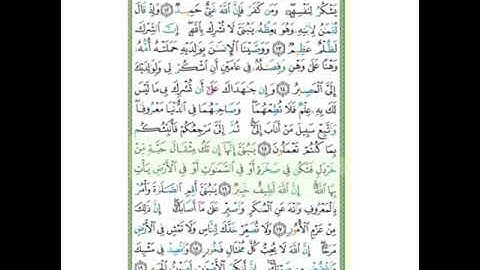 يَشْكُرُ لِنَفْسِهِۦ وَمَن كَفَرَ فَإِنَّ ٱللَّهَ غَنِىٌّ حَمِيدٌ ١٢ وَإِذْ قَالَ
لُقْمَٰنُ لِٱبْنِهِۦ وَهُوَ يَعِظُهُۥ يَٰبُنَىَّ لَا تُشْرِكْ بِٱللَّهِ إِنَّ ٱلشِّرْكَ
لَظُلْمٌ عَظِيمٌ ١٣ وَوَصَّيْنَا ٱلْإِنسَٰنَ بِوَٰلِدَيْهِ حَمَلَتْهُ أُمُّهُۥ
وَهْنًا عَلَىٰ وَهْنٍ وَفِصَٰلُهُۥ فِى عَامَيْنِ أَنِ ٱشْكُرْ لِى وَلِوَٰلِدَيْكَ
إِلَىَّ ٱلْمَصِيرُ ١٤ وَإِن جَٰهَدَاكَ عَلَىٰٓ أَن تُشْرِكَ بِى مَا لَيْسَ
لَكَ بِهِۦ عِلْمٌ فَلَا تُطِعْهُمَا وَصَاحِبْهُمَا فِى ٱلدُّنْيَا مَعْرُوفًا
وَٱتَّبِعْ سَبِيلَ مَنْ أَنَابَ إِلَىَّ ثُمَّ إِلَىَّ مَرْجِعُكُمْ فَأُنَبِّئُكُم
بِمَا كُنتُمْ تَعْمَلُونَ ١٥ يَٰبُنَىَّ إِنَّهَآ إِن تَكُ مِثْقَالَ حَبَّةٍ مِّنْ
خَرْدَلٍ فَتَكُن فِى صَخْرَةٍ أَوْ فِى ٱلسَّمَٰوَٰتِ أَوْ فِى ٱلْأَرْضِ يَأْتِ
بِهَا ٱللَّهُ إِنَّ ٱللَّهَ لَطِيفٌ خَبِيرٌ ١٦ يَٰبُنَىَّ أَقِمِ ٱلصَّلَوٰةَ وَأْمُرْ
بِٱلْمَعْرُوفِ وَٱنْهَ عَنِ ٱلْمُنكَرِ وَٱصْبِرْ عَلَىٰ مَآ أَصَابَكَ إِنَّ ذَٰلِكَ
مِنْ عَزْمِ ٱلْأُمُورِ ١٧ وَلَا تُصَعِّرْ خَدَّكَ لِلنَّاسِ وَلَا تَمْشِ فِى ٱلْأَرْضِ
مَرَحًا إِنَّ ٱللَّهَ لَا يُحِبُّ كُلَّ مُخْتَالٍ فَخُورٍ ١٨ وَٱقْصِدْ فِى مَشْيِكَ